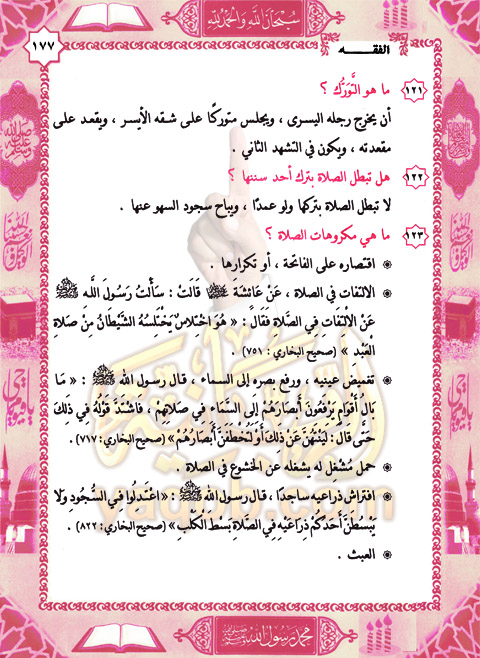 سبحان الله والحمد لله
١٧٧
الفقه
١٢١ ما هو التَّوَرُّك ؟
أن يخرج رجله اليسرى ، ويجلس متوركًا على شقه الأيسر ، ويقعد على
مقعدته ، ويكون في التشهد الثاني .
١٢٢ هل تبطل الصلاة بترك أحد سننها ؟
لا تبطل الصلاة بتركها ولو عمدًا ، ويباح سجود السهو عنها .
١٢٣ ما هي مكروهات الصلاة ؟
اقتصاره على الفاتحة ، أو تكرارها .
الالتفات في الصلاة ، عَنْ عَائِشَةَ قَالَتْ : سَأَلْتُ رَسُولَ اللَّهِ ﷺ
عَنْ الِالْتِفَاتِ فِي الصَّلَاةِ فَقَالَ : « هُوَ اخْتِلَاسٌ يَخْتَلِسُهُ الشَّيْطَانُ مِنْ صَلَاةِ
الْعَبْدِ » (صحيح البخاري : ٧٥١) .
تغميض عينيه ، ورفع بصره إلى السماء ، قال رسول الله ﷺ : « مَا
بَالُ أَقْوَامٍ يَرْفَعُونَ أَبْصَارَهُمْ إِلَى السَّمَاءِ فِي صَلَاتِهِمْ ، فَاشْتَدَّ قَوْلُهُ فِي ذَلِكَ
حَتَّى قَالَ : لَيَنْتَهُنَّ عَنْ ذَلِكَ أَوْ لَتُخْطَفَنَّ أَبْصَارُهُمْ » (صحيح البخاري: ٧١٧) .
حمل مُشْغِلٍ له يشغله عن الخشوع في الصلاة .
افتراش ذراعيه ساجدًا ، قال رسول الله ﷺ : « اعْتَدِلُوا فِي السُّجُودِ وَلَا
يَبْسُطَنَّ أَحَدُكُمْ ذِرَاعَيْهِ فِي الصَّلَاةِ بَسْطَ الْكَلْبِ » (صحيح البخاري: ٨٢٢) .
العبث .
محمد رسول الله ﷺ